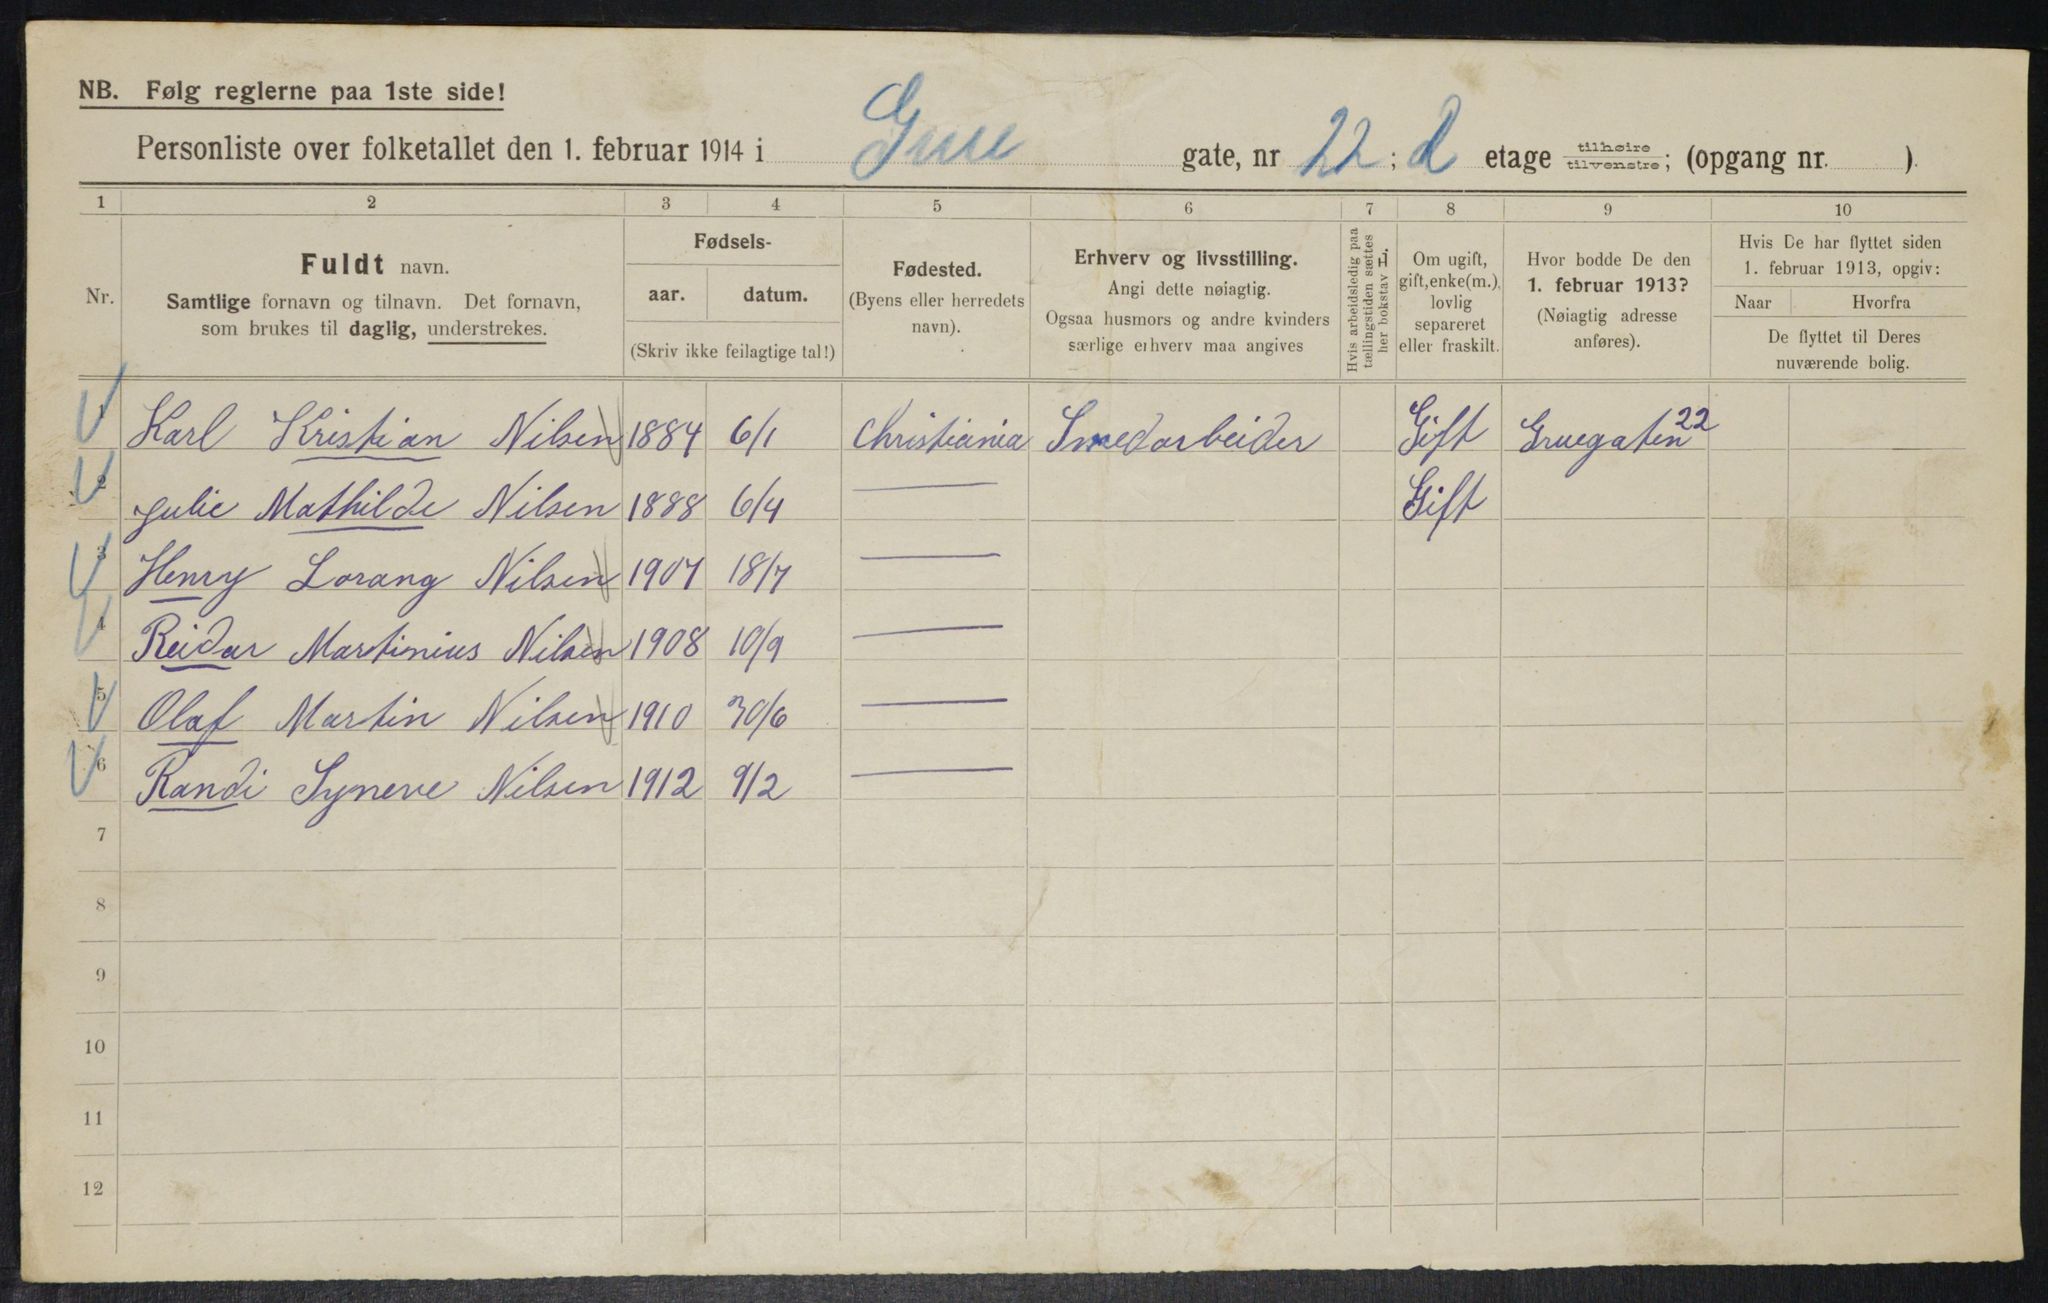 NB. Følg reglerne paa 1ste side!
Personliste over folketallet den 1. februar 1914 i Grue gate, nr 22; 2 etage tilhøire / tilvenstre; (opgang nr. ).
1 2 3 4 5 6 7 8 9 10
Nr.
Fuldt navn.
Samtlige fornavn og tilnavn. Det fornavn,
som brukes til daglig, understrekes.
Fødsels-
aar. datum.
(Skriv ikke feilagtige tal!)
Fødested.
(Byens eller herredets
navn).
Erhverv og livsstilling.
Angi dette nøiagtig.
Ogsaa husmors og andre kvinders
særlige erhverv maa angives
Hvis arbeidsledig paa
tællingstiden sættes
her bokstav L.
Om ugift,
gift, enke(m.),
lovlig
separeret
eller fraskilt.
Hvor bodde De den
1. februar 1913?
(Nøiagtig adresse
anføres).
Hvis De har flyttet siden
1. februar 1913, opgiv:
Naar Hvorfra
De flyttet til Deres
nuværende bolig.
1 Karl Kristian Nilsen 1884 6/1 Christiania Smedarbeider Gift Gruegaten 22
2 Julie Mathilde Nilsen 1888 6/4 — Gift
3 Henry Lorang Nilsen 1907 18/7 —
4 Reidar Martinius Nilsen 1908 10/9 —
5 Olaf Martin Nilsen 1910 30/6 —
6 Randi Syneve Nilsen 1912 9/2 —
7
8
9
10
11
12